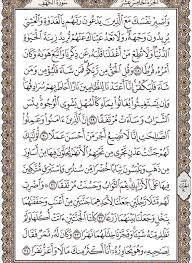 الجزء الخامس عشر سورة الكهف
وَاصْبِرْ نَفْسَكَ مَعَ الَّذِينَ يَدْعُونَ رَبَّهُم بِالْغَدَوٰةِ وَالْعَشِيِّ
يُرِيدُونَ وَجْهَهُ وَلَا تَعْدُ عَيْنَاكَ عَنْهُمْ تُرِيدُ زِينَةَ الْحَيَوٰةِ
الدُّنْيَا وَلَا تُطِعْ مَنْ أَغْفَلْنَا قَلْبَهُ عَن ذِكْرِنَا وَاتَّبَعَ هَوَىٰهُ وَكَانَ
أَمْرُهُ فُرُطًا ٢٨ وَقُلِ الْحَقُّ مِن رَّبِّكُمْ فَمَن شَاءَ فَلْيُؤْمِن وَمَن
شَاءَ فَلْيَكْفُرْ إِنَّا أَعْتَدْنَا لِلظَّٰلِمِينَ نَارًا أَحَاطَ بِهِمْ سُرَادِقُهَا
وَإِن يَسْتَغِيثُوا يُغَاثُوا بِمَاءٍ كَالْمُهْلِ يَشْوِي الْوُجُوهَ بِئْسَ
الشَّرَابُ وَسَاءَتْ مُرْتَفَقًا ٢٩ إِنَّ الَّذِينَ ءَامَنُوا وَعَمِلُوا
الصَّٰلِحَٰتِ إِنَّا لَا نُضِيعُ أَجْرَ مَنْ أَحْسَنَ عَمَلًا ٣٠ أُولَٰئِكَ
لَهُمْ جَنَّٰتُ عَدْنٍ تَجْرِي مِن تَحْتِهِمُ الْأَنْهَٰرُ يُحَلَّوْنَ فِيهَا مِنْ أَسَاوِرَ
مِن ذَهَبٍ وَيَلْبَسُونَ ثِيَابًا خُضْرًا مِّن سُندُسٍ وَإِسْتَبْرَقٍ مُّتَّكِئِينَ
فِيهَا عَلَى الْأَرَائِكِ نِعْمَ الثَّوَابُ وَحَسُنَتْ مُرْتَفَقًا ٣١ وَاضْرِبْ
لَهُم مَّثَلًا رَّجُلَيْنِ جَعَلْنَا لِأَحَدِهِمَا جَنَّتَيْنِ مِنْ أَعْنَٰبٍ وَحَفَفْنَٰهُمَا
بِنَخْلٍ وَجَعَلْنَا بَيْنَهُمَا زَرْعًا ٣٢ كِلْتَا الْجَنَّتَيْنِ ءَاتَتْ أُكُلَهَا وَلَمْ
تَظْلِم مِّنْهُ شَيْئًا وَفَجَّرْنَا خِلَٰلَهُمَا نَهَرًا ٣٣ وَكَانَ لَهُ ثَمَرٌ فَقَالَ
لِصَٰحِبِهِ وَهُوَ يُحَاوِرُهُ أَنَا أَكْثَرُ مِنكَ مَالًا وَأَعَزُّ نَفَرًا ٣٤